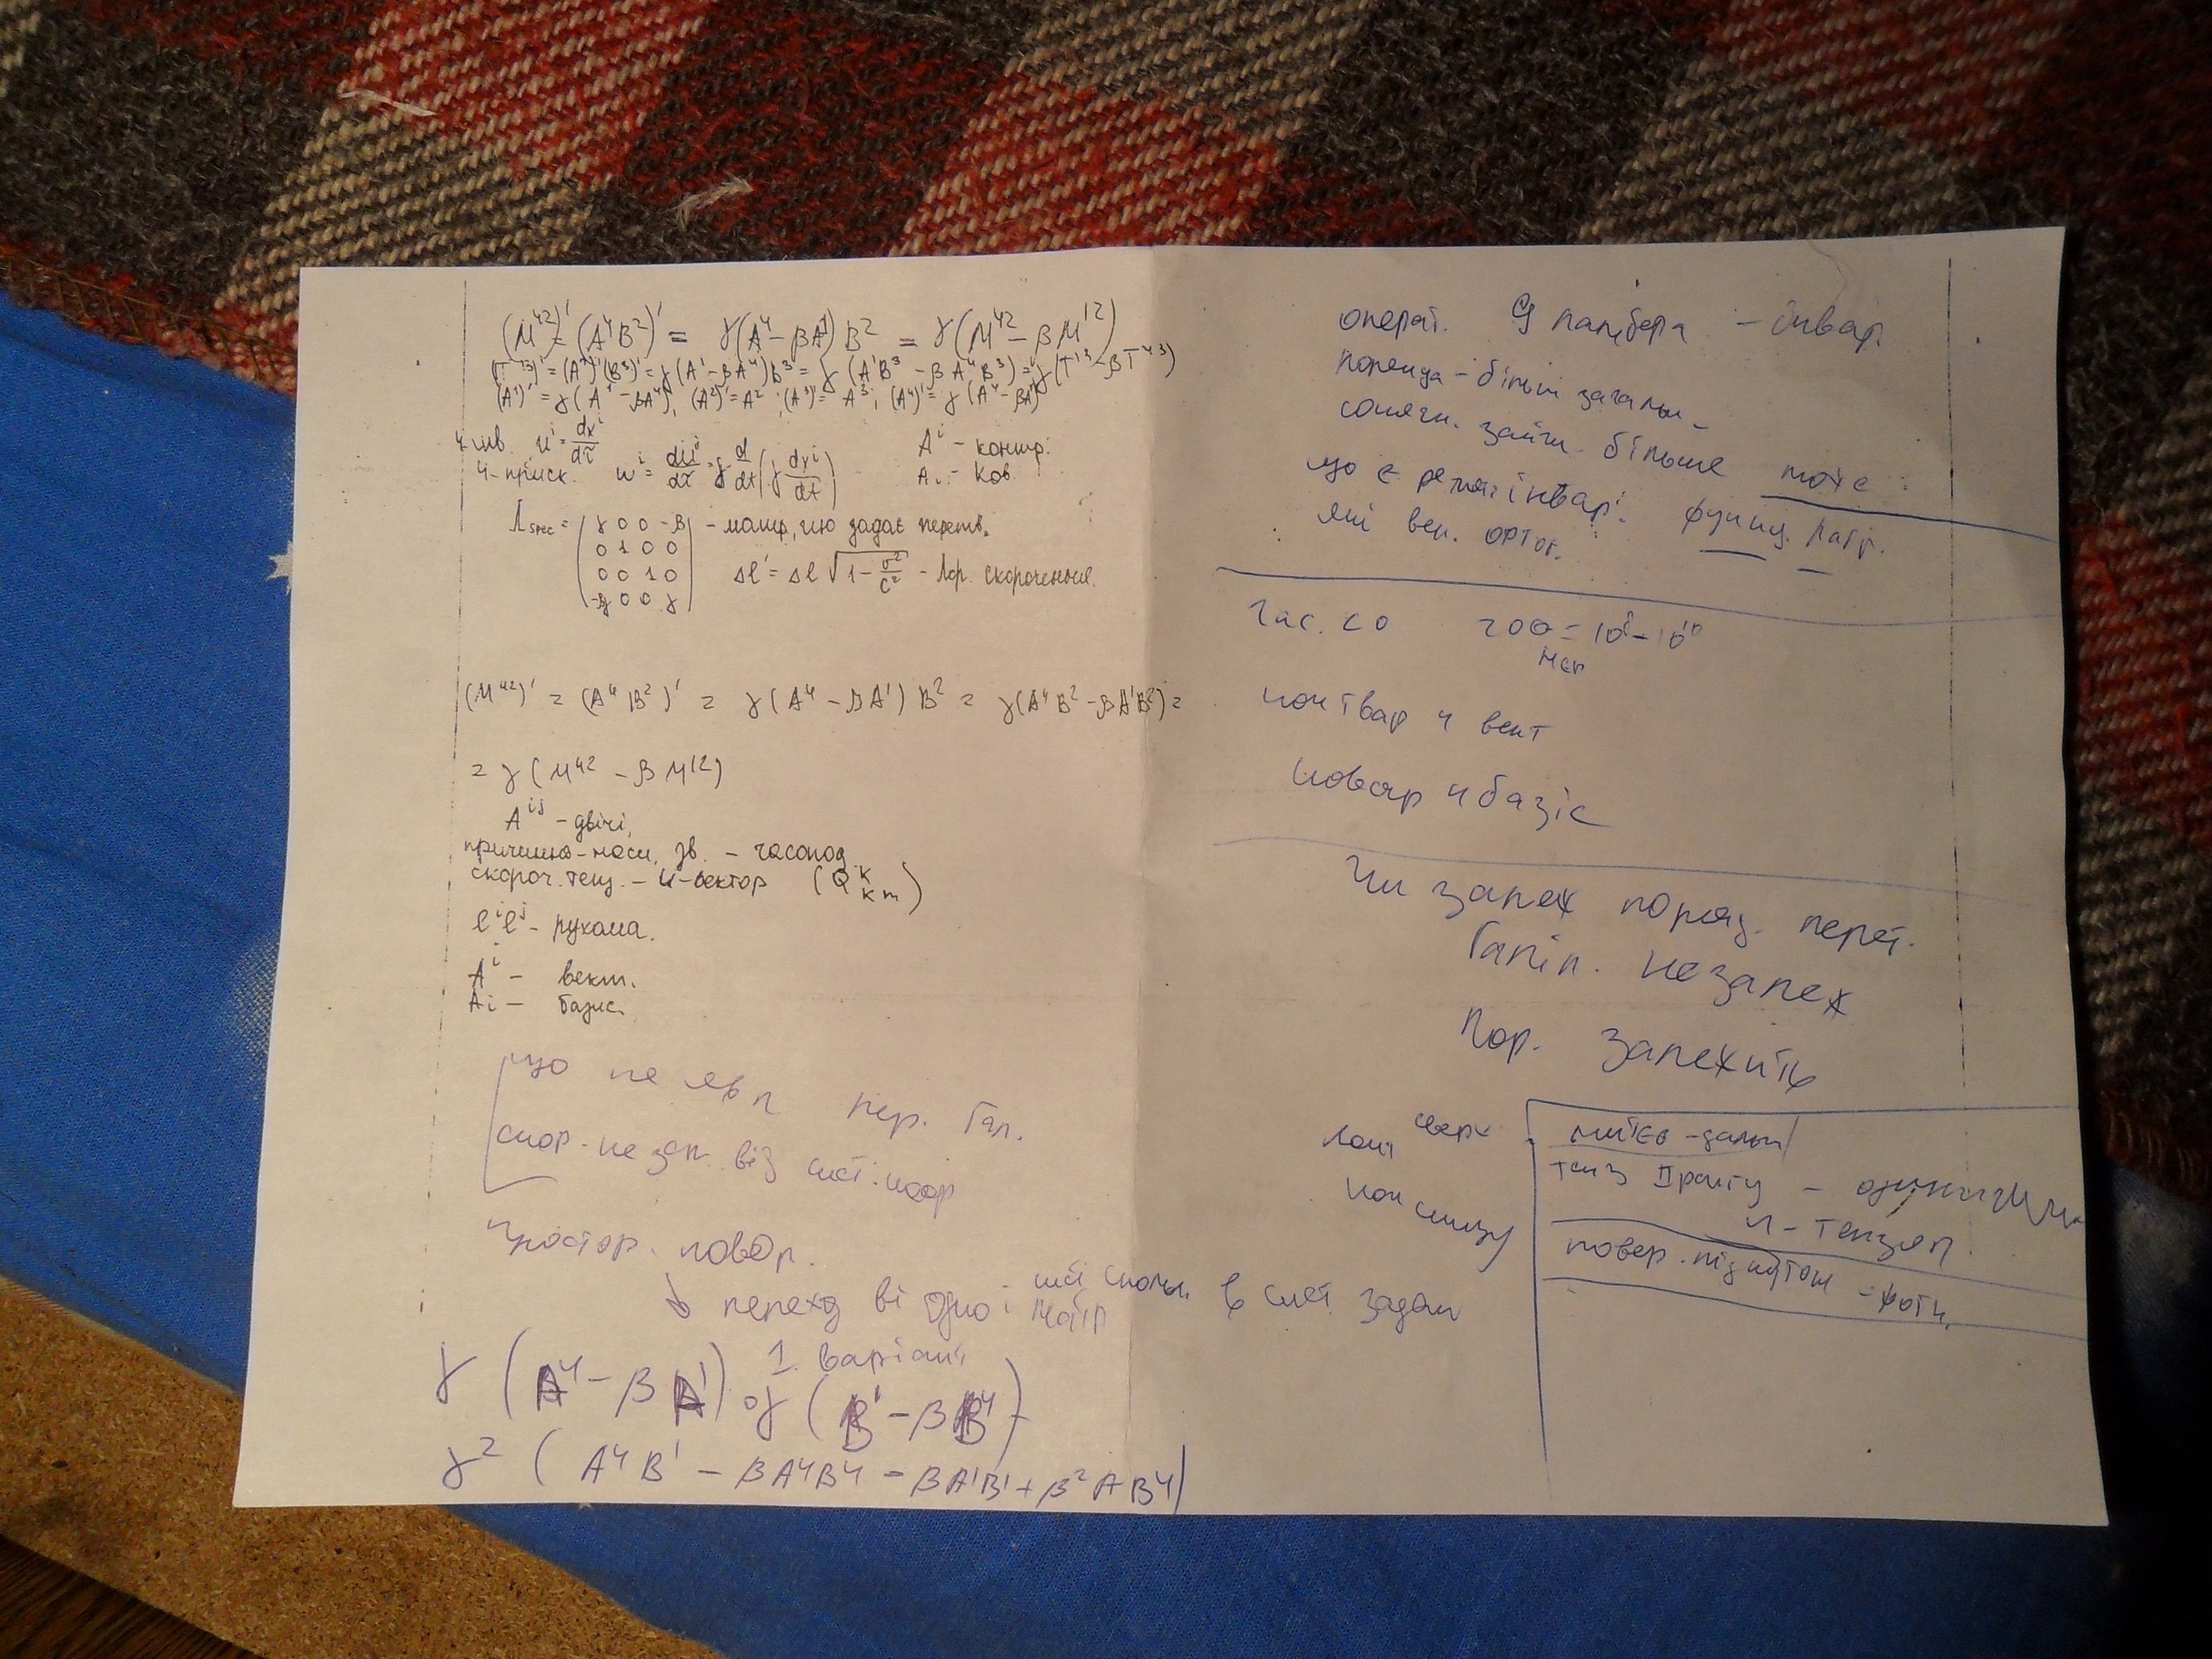 (M⁴²)' = (A⁴B²)' = γ(A⁴ − βA¹)B² = γ(M⁴² − βM¹²)
(T¹³)' = (A¹)'(B³)' = γ(A¹ − βA⁴)B³ = γ(A¹B³ − βA⁴B³) = γ(T¹³ − βT⁴³)
(A¹)' = γ(A¹ − βA⁴), (A²)' = A²; (A³)' = A³; (A⁴)' = γ(A⁴ − βA¹)
4-шв. uⁱ = dxⁱ/dτ Aⁱ – контр.
4-приск. wⁱ = duⁱ/dτ = γ d/dt (γ dxⁱ/dt) Aᵢ – ков.
Λ = γ 0 0 -β – матр, що задає перетв.
0 1 0 0
0 0 1 0 Δl' = Δl √(1 − υ²/c²) – Лор. скорочення.
0 0 γ
(M⁴²)' = (A⁴B²)' = γ(A⁴ − βA¹)B² = γ(A⁴B² − βA¹B²) =
= γ(M⁴² − βM¹²)
Aⁱʲ – двічі,
причинно-насл. зв. – часопод.
скороч. тенз. – 4-вектор (Qᵏₖₘ)
lⁱlʲ – рухома.
Aⁱ – вект.
Aᵢ – базис.
що не явл пер. Гал.
скор. не зал. від сист. коор
простор. повор.
перехд ві одної в сист. задан
1. варіант
γ(A⁴ − βA¹) · γ(B¹ − βB⁴)
γ²(A⁴B¹ − βA⁴B⁴ − βA¹B¹ + β²AB⁴)
операт. Даламбера – інвар.
Лоренца – більш загальн
соняч. займ. більше може
що є релят. інвар. функц. Лагр.
які век. ортог.
час. < 0 200 = 10⁸ – 10¹⁰
контвар 4 вект
ковар 4 базіс
Чи залеж поряд. перет.
Галіл. незалеж
Лор. залежить
сверх миттєв – дальн
тенз II рангу –
4 – тензор.
кон снизу повер. під кутом – фотн.